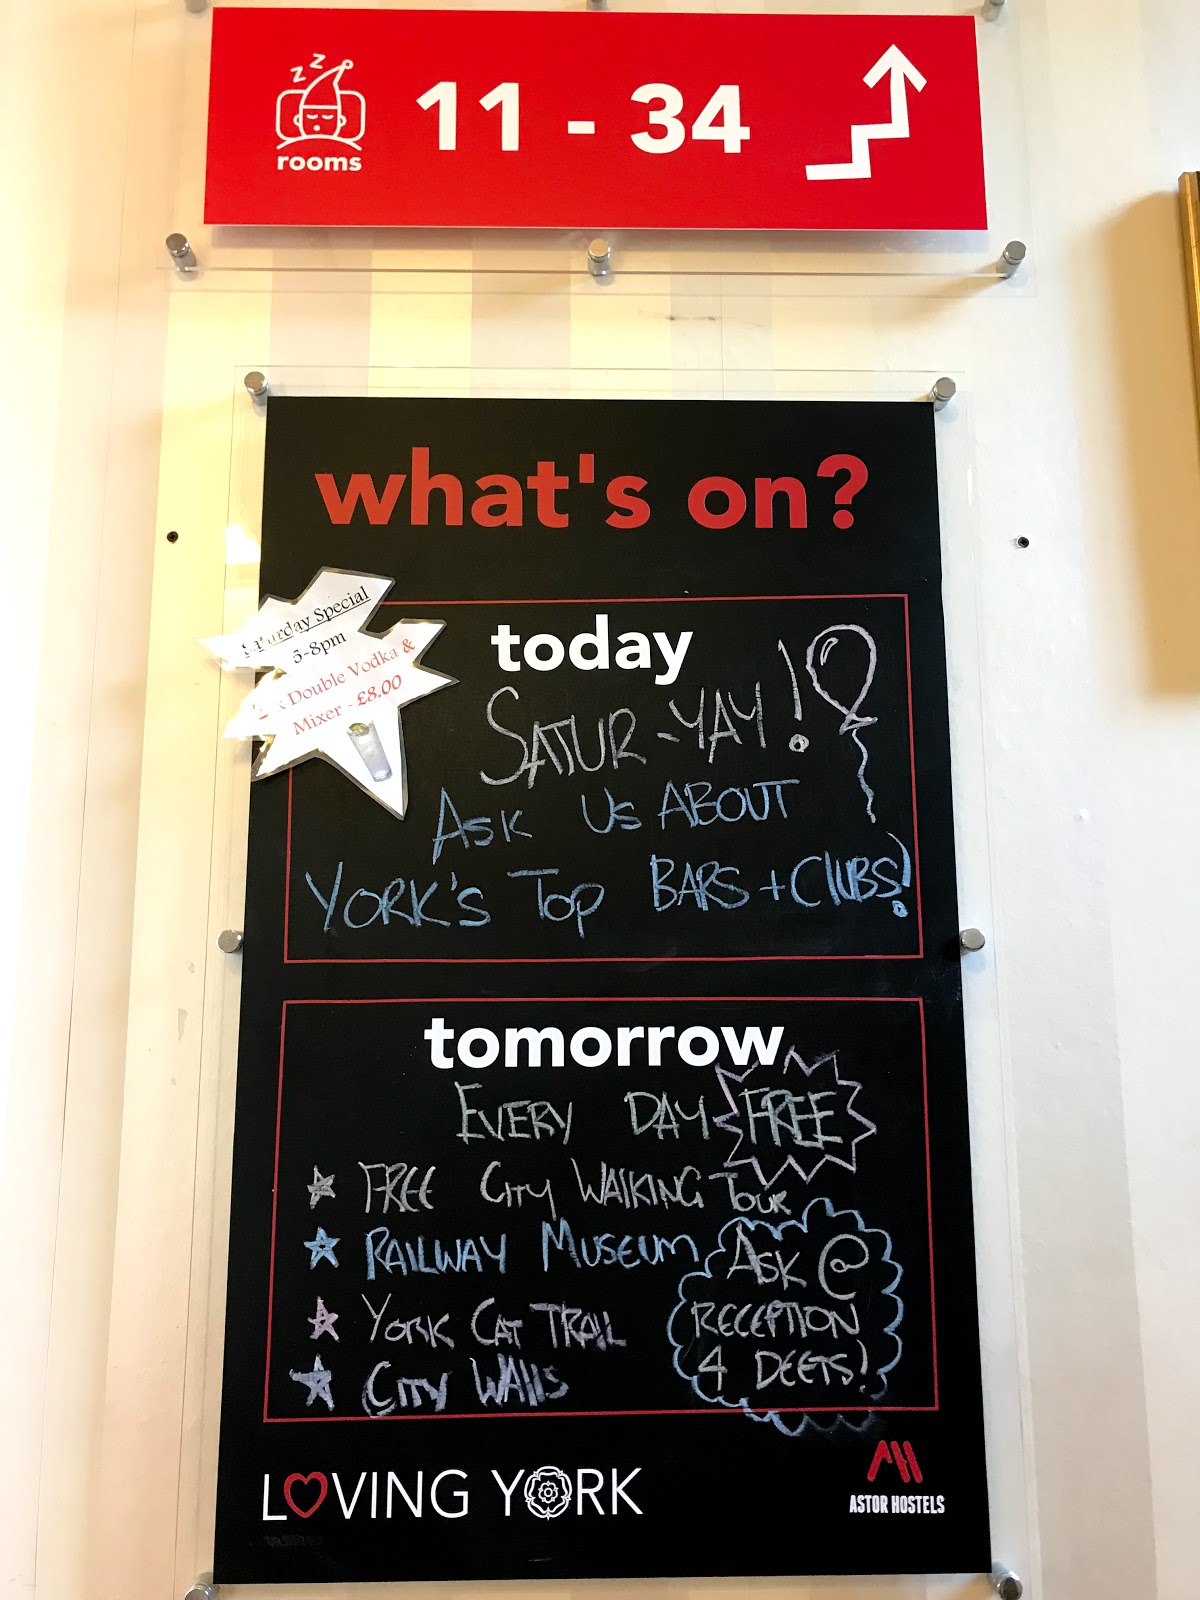 rooms
11 - 34
what's on?
Saturday Special
5-8pm
Double Vodka &
Mixer - £8.00
today
SATUR-YAY!
ASK US ABOUT
YORK'S TOP BARS + CLUBS!
tomorrow
EVERY DAY FREE
FREE CITY WALKING TOUR
RAILWAY MUSEUM
YORK CAT TRAIL
CITY WALLS
ASK @
RECEPTION
4 DEETS!
LOVING YORK
ASTOR HOSTELS